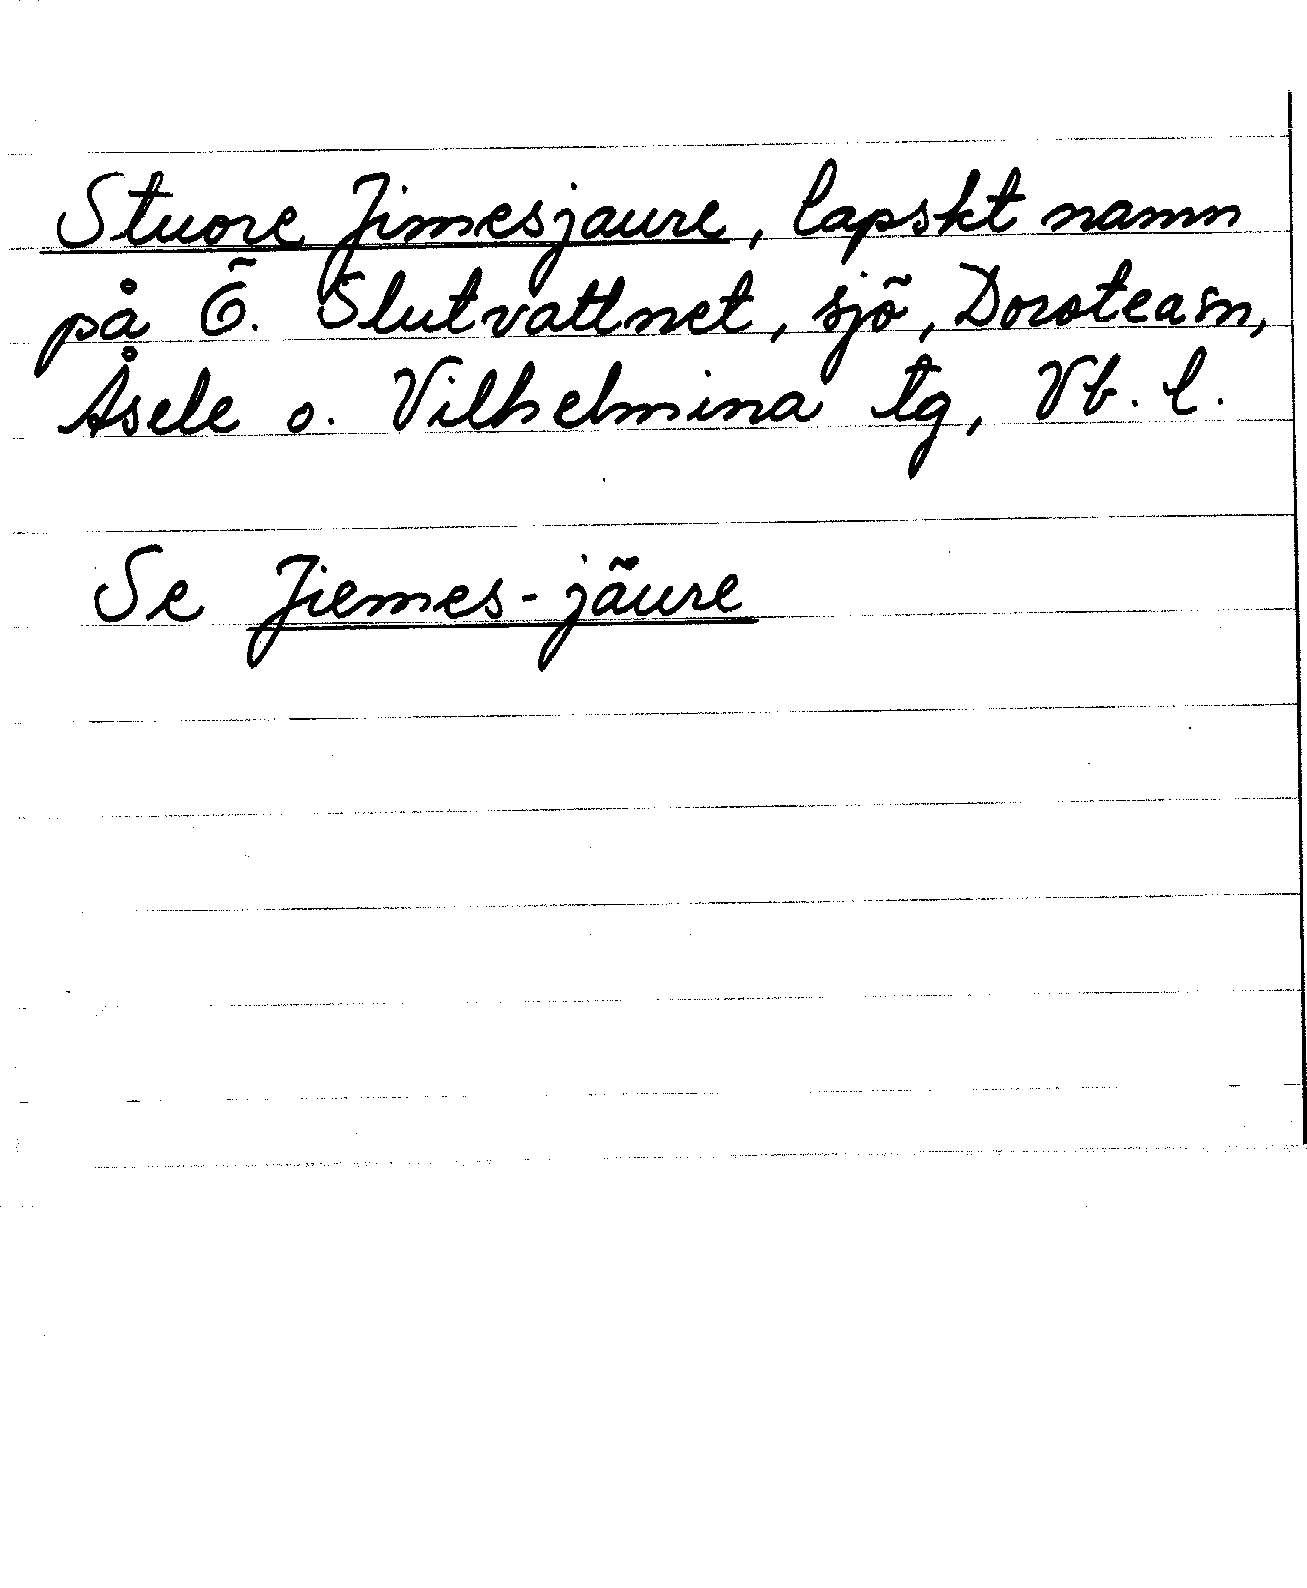 Stuore Jimesjaure, lapskt namn
på Ö. Slutvattnet, sjö, Dorotea sn,
Åsele o. Vilhelmina tg, Vb. l.
Se Jiemes-jäure